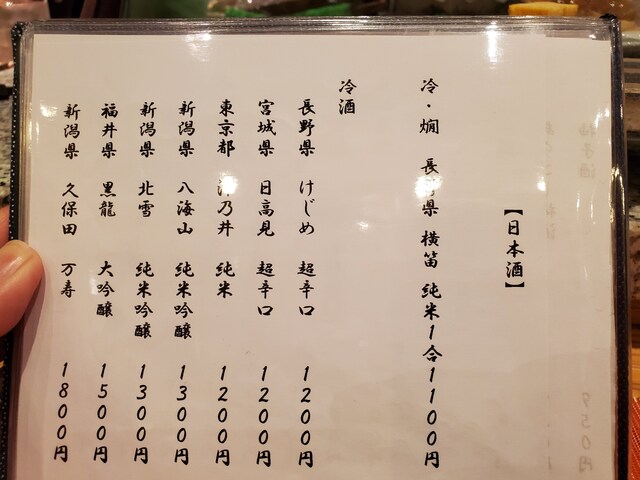 【日本酒】
冷・燗 長野県 横笛 純米1合1100円
冷酒
長野県 けじめ 超辛口 1200円
宮城県 日高見 超辛口 1200円
東京都 澤乃井 純米 1200円
新潟県 八海山 純米吟醸 1300円
新潟県 北雪 純米吟醸 1300円
福井県 黒龍 大吟醸 1500円
新潟県 久保田 万寿 1800円